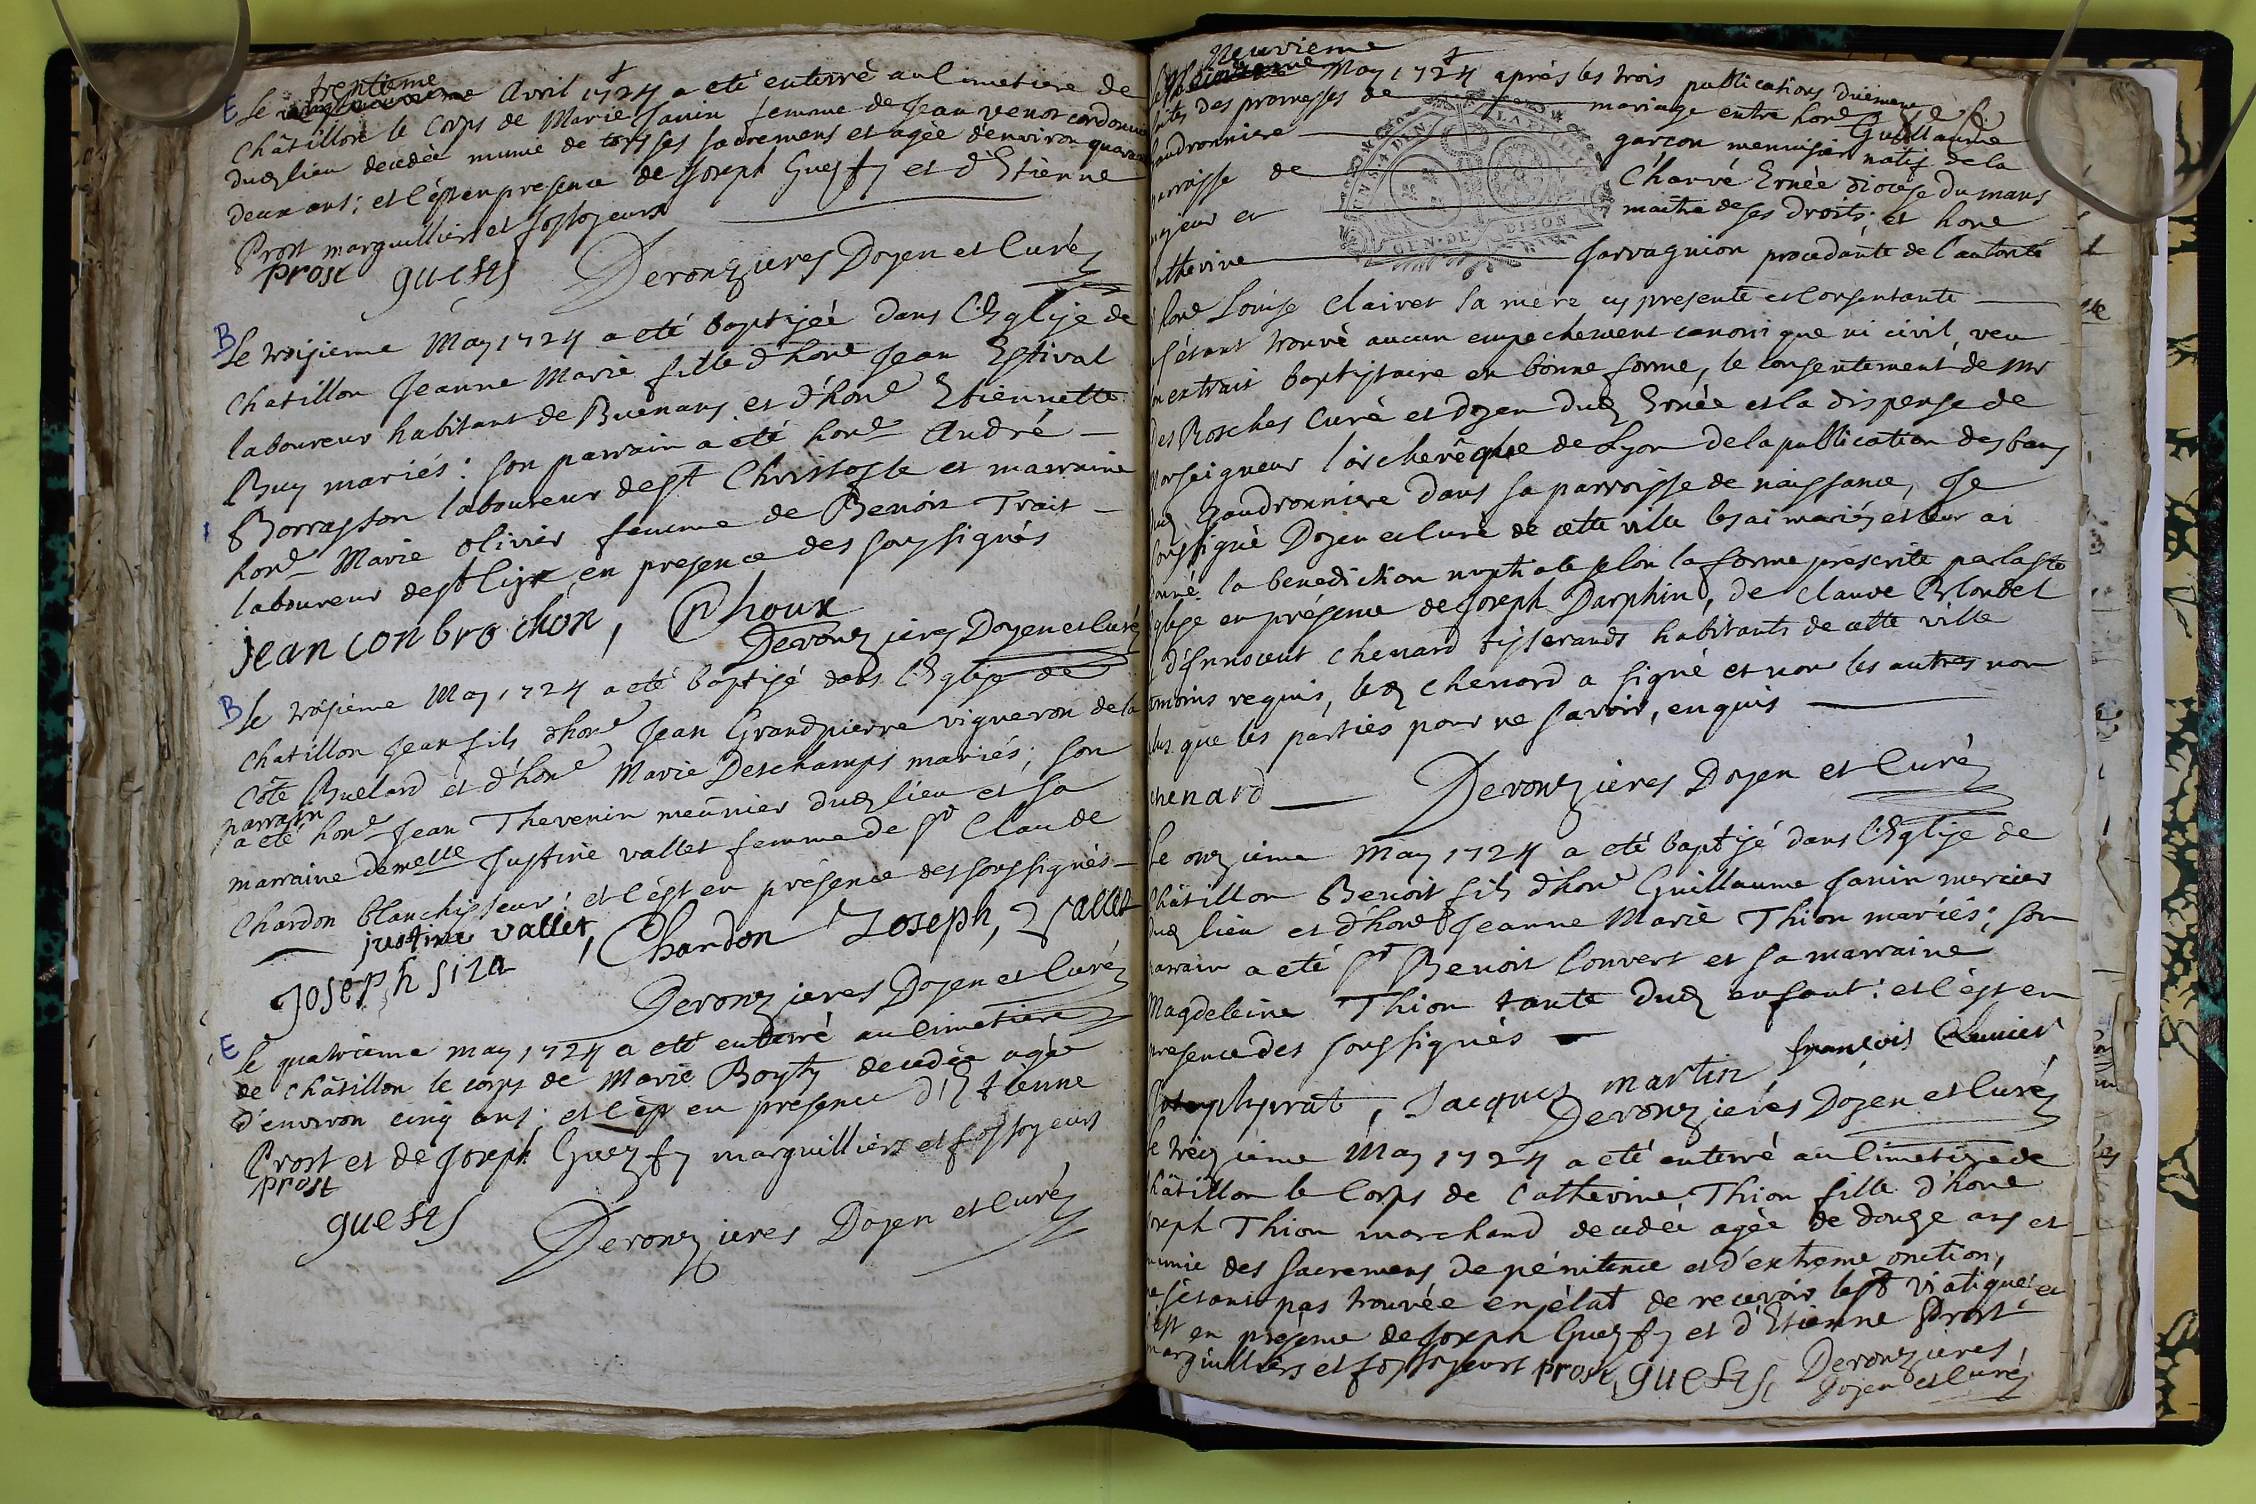 E Le trentieme Avril 1724 a eté enterré au Cimetiere de
Châtillon le Corps de Marie Janin femme de Jean venot cordonnier
dudz lieu decedée munie de tous ses sacremens et agée d'environ quarante
deux ans; et c'est en presence de Joseph Guezfy et d'Etienne
Prost marguilliers et fossoyeurs
prost guefzs Deronzieres Doyen et Curé
B Le troisieme May 1724 a eté baptisée dans l'Eglise de
Chatillon Jeanne Marie fille d'hone Jean Estival
laboureur habitant de Buenans et d'hone Etiennette
Buy mariés: son parrain a eté hone André
Borrasson laboureur de st Christofle et marraine
hone Marie olivier femme de Benoit Trait
laboureur de st Cyr en presence des soussignés
jean conbrochon, Phoux
Deronzieres Doyen et Curé
B Le troisieme May 1724 a eté baptisé dans l'Eglise de
Chatillon Jean fils d'hone Jean Grandpierre vigneron de la
Côte Buelard et d'hone Marie Deschamps mariés; son
parrain
a eté hone Jean Thevenin meûnier dudz lieu et sa
marraine demelle Justine vallet femme de sr Claude
Chardon blanchisseur: et c'est en présence des soussignés
justine vallet, Chardon Joseph, Vallet
Joseph siza
Deronzieres Doyen et Curé
E Le quatrieme may 1724 a eté enterré au Cimetiere
de Châtillon le corps de Marie Boyty decedée agée
d'environ cinq ans: et c'est en présence d'Etienne
Prost et de Joseph Guezfy marguilliers et fossoyeurs
prost
guefzs Deronzieres Doyen et Curé
neuvieme
May 1724 aprés les trois publications düement
faites des promesses de mariage entre hone Guillaume
Gaudronniere garçon menuisier natif de la
parroisse de Charné Ernée diocése du mans
majeur et maître de ses droits; et hone
Catherine Jarvagnion procedante de l'autorité
d'hone Louise Clairet sa mére cy presente et consentante
s'étant trouvé aucun empechement canonique ni civil, veu
un extrait baptistaire en bonne forme, le consentement de Mr
Des Rosches Curé et doyen dudz Ernée et la dispense de
Monseigneur l'archevêque de Lyon de la publication des bans
dudz Gaudronniere dans sa parroisse de naissance, Je
soussigné Doyen et Curé de cette ville les ai mariés et leur ai
donné la benediction nuptiale selon la forme prescrite par la ste
Eglise en présence de Joseph Darphin, de Claude Blondel
d'Innocent Chenard tisserands habitants de cette ville
témoins requis, ledz Chenard a signé et non les autres non
plus que les parties pour ne savoir, enquis
chenard Deronzieres Doyen et Curé
Le onzieme may 1724 a eté baptisé dans l'Eglise de
Châtillon Benoit fils d'hone Guillaume Janin mercier
dudz lieu et d'hone Jeanne Marie Thion mariés; son
parrain a eté sr Benoit Convert et sa marraine
Magdeleine Thion tante dudz enfant: et c'est en
presence des soussignés françois
Josephprat, Jacques martin
Deronzieres Doyen et Curé
Le treizieme May 1724 a eté enterré au Cimetiere de
Châtillon le Corps de Catherine Thion fille d'hone
Joseph Thion marchand decedée agée de douze ans et
munie des sacremens de pénitence et d'extreme onction,
ne s'étant pas trouvée en état de recevoir le st viatique: et
c'est en présence de Joseph Guezfy et d'Etienne Prost
marguilliers et fossoyeurs prost, guefzs, Deronzieres
Doyen et Curé